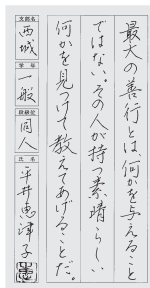 最大の善行とは何かを与えること
ではない。その人が持つ素晴らしい
何かを見つけて教えてあげることだ。
支部名
西城
学年
一般
段級位
同人
氏名
平井恵津子